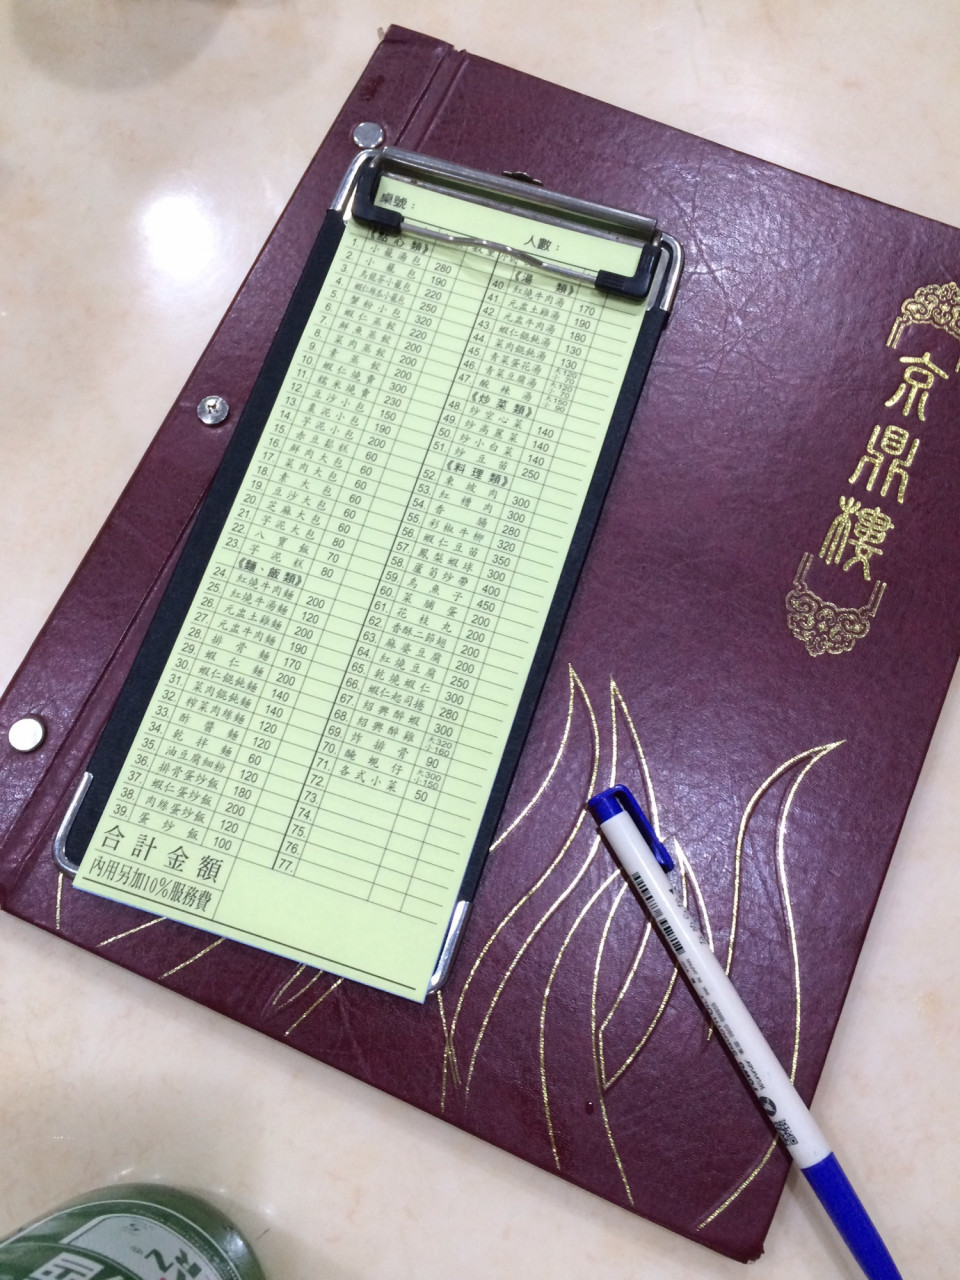 桌號：
人數：
《點心類》
1. 小籠湯包 280
2. 小籠包 190
3. 烏龍茶小籠包 220
4. 250
5. 蟹粉小包 320
6. 蝦仁蒸餃 220
7. 鮮魚蒸餃 200
8. 菜肉蒸餃 200
9. 素蒸餃 200
10. 蝦仁燒賣 300
11. 糯米燒賣 230
12. 豆沙小包 150
13. 棗泥小包 190
14. 芋泥小包 200
15. 赤豆鬆糕 60
16. 鮮肉大包 60
17. 菜肉大包 60
18. 素大包 60
19. 豆沙大包 60
20. 芝麻大包 60
21. 芋泥大包 80
22. 八寶飯 70
23. 芋泥糕 80
《麵、飯類》
24. 紅燒牛肉麵 200
25. 紅燒牛湯麵 120
26. 元盅土雞麵 200
27. 元盅牛肉麵 190
28. 排骨麵 170
29. 蝦仁麵 200
30. 蝦仁餛飩麵 140
31. 菜肉餛飩麵 140
32. 榨菜肉絲麵 120
33. 酢醬麵 120
34. 乾拌麵 60
35. 油豆腐細粉 120
36. 排骨蛋炒飯 180
37. 蝦仁蛋炒飯 200
38. 肉絲蛋炒飯 120
39. 蛋炒飯 100
《湯類》
40. 紅燒牛肉湯 170
41. 元盅土雞湯 190
42. 元盅牛肉湯 180
43. 蝦仁餛飩湯 130
44. 菜肉餛飩湯 130
45. 青菜蛋花湯 大120 小70
46. 青菜豆腐湯 大120 小70
47. 酸辣湯 大150 小90
《炒菜類》
48. 炒空心菜 140
49. 炒高麗菜 140
50. 炒小白菜 140
51. 炒豆苗 250
《料理類》
52. 東坡肉 300
53. 紅糟肉 300
54. 香腸 280
55. 彩椒牛柳 320
56. 蝦仁豆苗 350
57. 鳳梨蝦球 300
58. 蘆筍炒帶 400
59. 烏魚子 450
60. 菜脯蛋 200
61. 花枝丸 200
62. 香酥二節翅 200
63. 麻婆豆腐 200
64. 紅燒豆腐 250
65. 乾燒蝦仁 300
66. 蝦仁起司捲 280
67. 紹興醉蝦 300
68. 紹興醉雞 大320 小160
69. 炸排骨 90
70. 醃蜆仔 大300 小150
71. 各式小菜 50
72.
73.
74.
75.
76.
77.
合計金額
內用另加10%服務費
京鼎樓